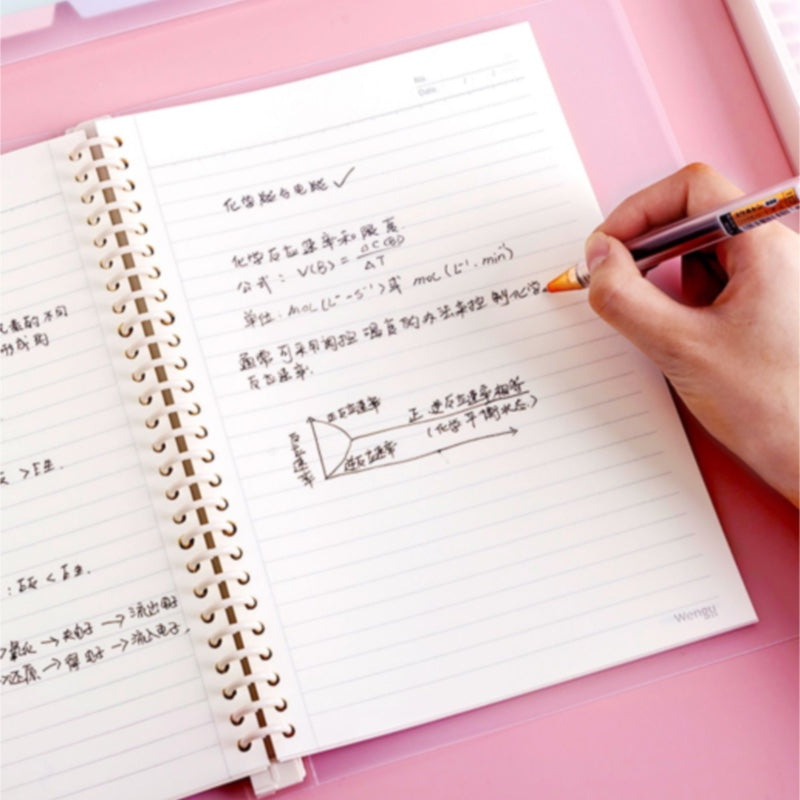 元素的不同
形成的
反 > E生.
: E反 < E生.
→氧化 → 失电子 → 流出电子
→还原 → 得电子 → 流入电子.
No.
Date
化学能与电能 ✓
化学反应速率和限度.
公式: V(B) = ΔC(B) / ΔT
单位. mol(L⁻¹·s⁻¹)或 mol(L⁻¹·min⁻¹)
通常可采用调控温度的办法来控制化学
反应速率.
正反应速率
正.逆反应速率相等
(化学平衡状态)
反应速率
逆反应速率
Wengu